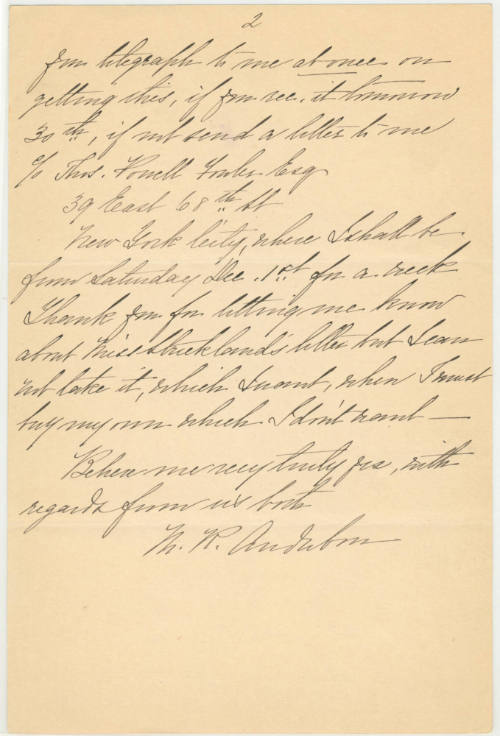 2
you telegraph to me at once on
getting this, if you rec. it tomorrow
30th, if not send a letter to me
c/o Thos. Powell Fowler Esq
39 East 68th st
New York City, where I shall be
from Saturday Dec. 1st for a week
Thank you for letting me know
about Miss Strickland's letter but I can
not take it, which I want, when I must
buy my own which I don't want —
Believe me very truly yrs, with
regards from us both
M. R. Audubon